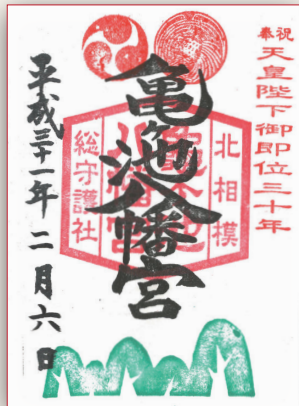 奉祝
天皇陛下御即位三十年
北相模
亀池八幡宮
総守護社
平成三十一年二月六日